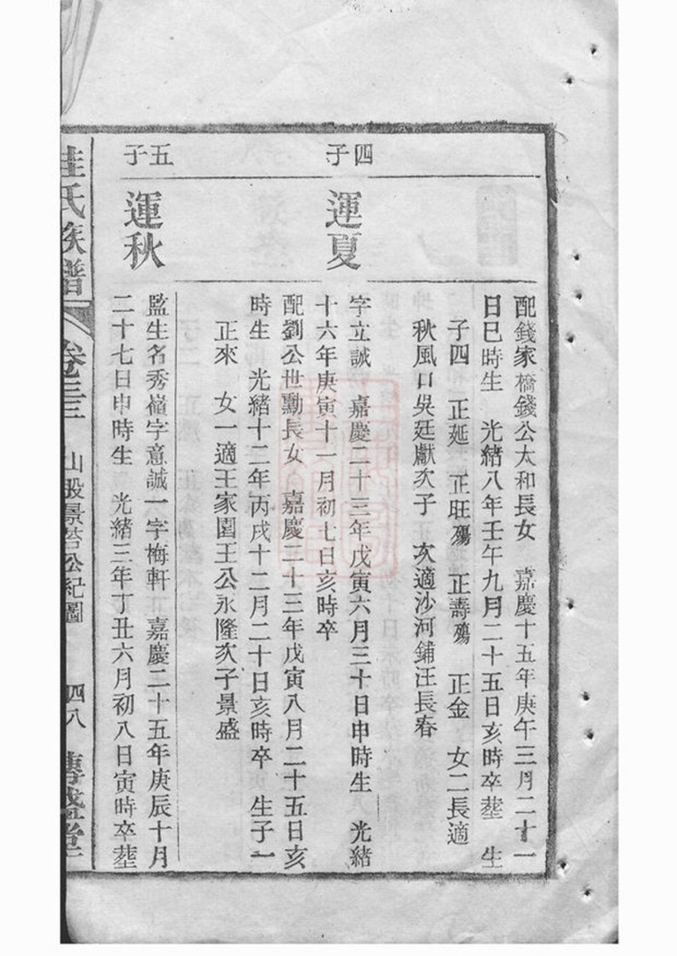 配錢家橋錢公太和長女　嘉慶十五年庚午三月二十一
日巳時生　光緒八年壬午九月二十五日亥時卒塟　生
子四　正延　正旺殤　正壽殤　正金　女二長適
秋風口吳廷獻次子　次適沙河鋪汪長春
四子
運夏
字立誠　嘉慶二十三年戊寅六月三十日申時生　光緒
十六年庚寅十一月初七日亥時卒
配劉公世勳長女　嘉慶二十三年戊寅八月二十五日亥
時生　光緒十二年丙戌十二月二十日亥時卒　生子一
正來　女一適王家園王公永隆次子景盛
五子
運秋
監生名秀嶺字意誠一字梅軒　嘉慶二十五年庚辰十月
二十七日申時生　光緒三年丁丑六月初八日寅時卒塟
氏族譜　卷三三　山股景苔公紀圖　四八